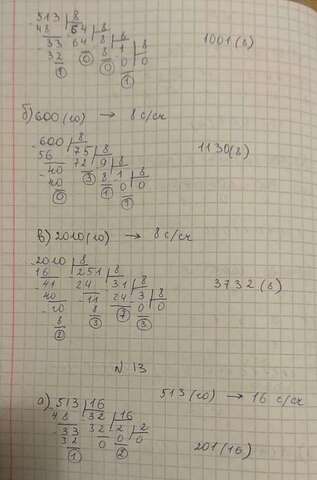 513 | 8
48 64 | 8
33 64 8 | 8
32 0 8 1 | 8
1 0 0 0
1
1001(8)
б) 600(10) → 8 с/сч
600 | 8
56 75 | 8
40 72 9 | 8
40 3 8 1 | 8
0 1 0 0
1
1130(8)
в) 2010(10) → 8 с/сч
2010 | 8
16 251 | 8
41 24 31 | 8
40 11 24 3 | 8
10 8 7 0 0
8 3 3
2
3732(8)
N 13
513(10) → 16 с/сч
а) 513 | 16
48 32 | 16
33 32 2 | 2
32 0 0 0
1 2
201(16)